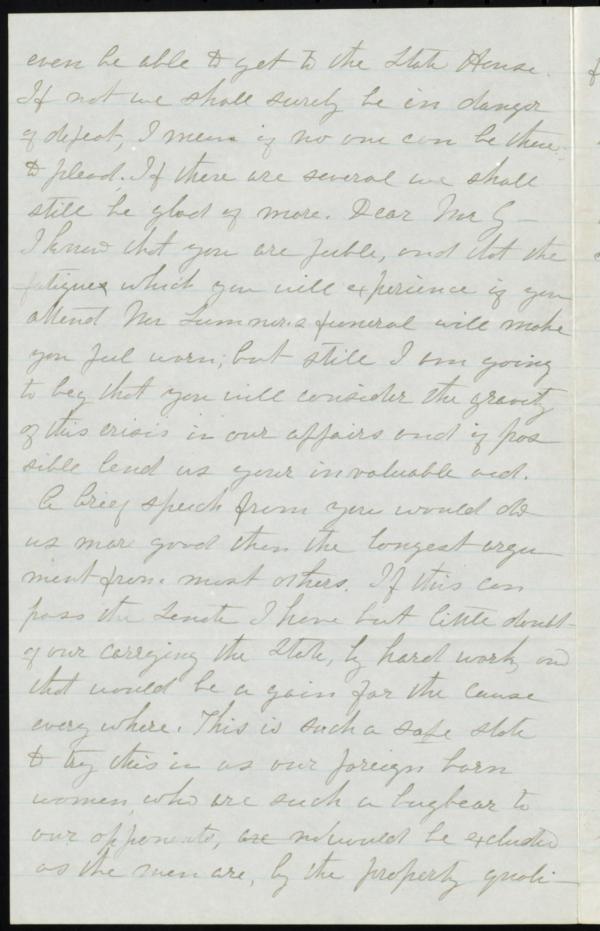 even be able to get to the State House.
If not we shall surely be in danger
of defeat, I mean if no one can be there
to plead. If there are several we shall
still be glad of more. Dear Mr G—
I know that you are feeble, and that the
fatigues which you will experience if you
attend Mr Sumner's funeral will make
you feel worn; but still I am going
to beg that you will consider the gravity
of this crisis in our affairs and if pos
sible lend us your invaluable aid.
A brief speech from you would do
us more good than the longest argu
ment from most others. If this can
pass the Senate I have but little doubt
of our carrying the State, by hard work, and
that would be a gain for the cause
every where. This is such a safe state
to try this in as our foreign born
women, who are such a bugbear to
our opponents, are would be excluded
as the men are, by the property quali